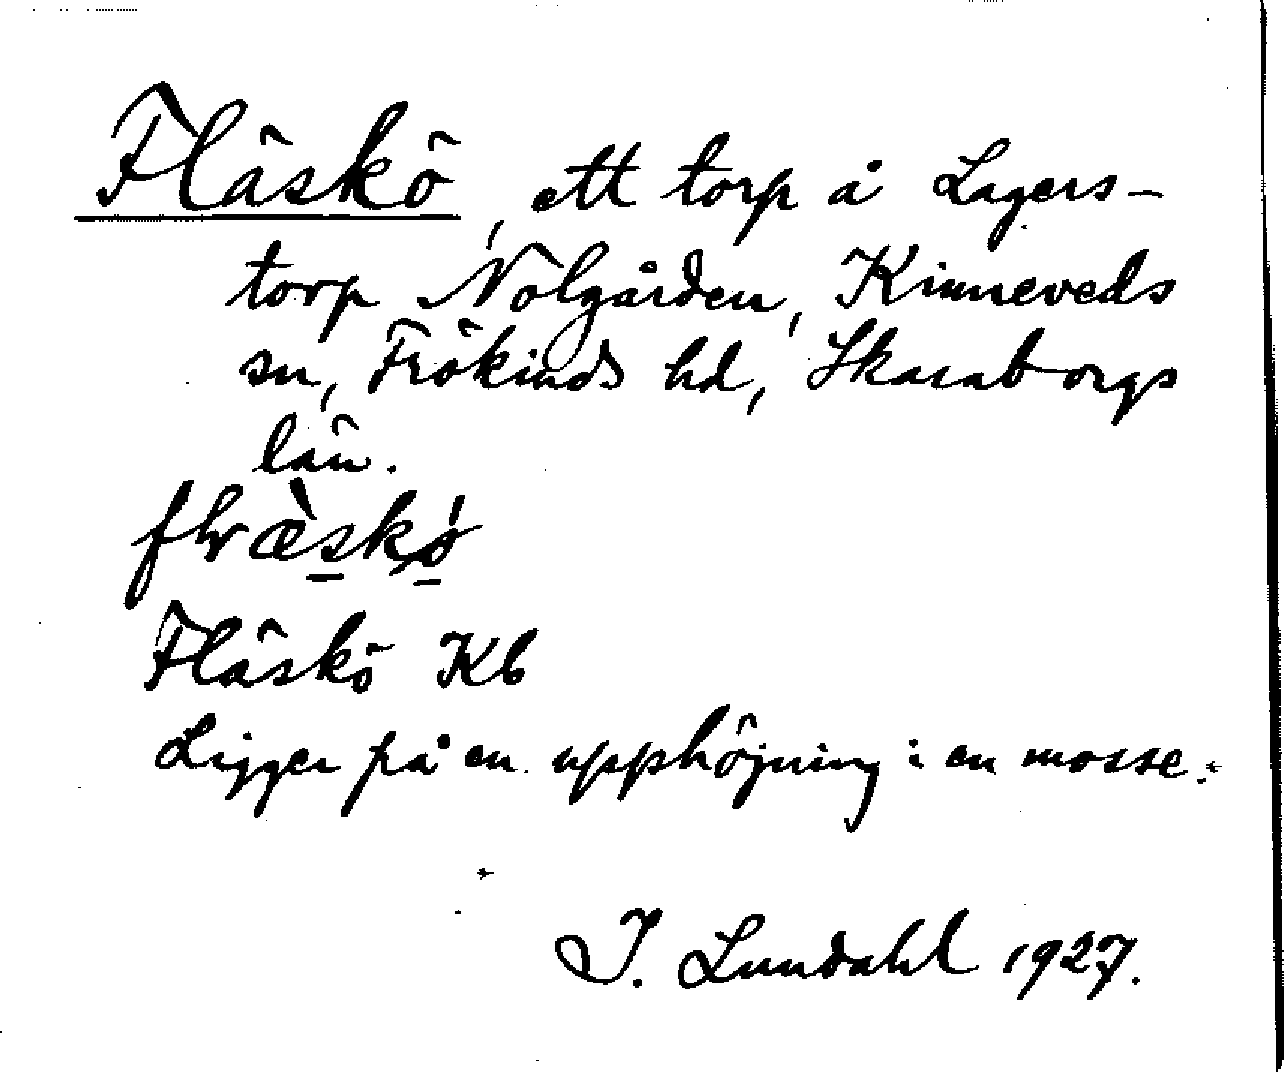 Fläskö, ett torp å Lagers-
torp Nolgården, Kinneveds
sn, Frökinds hd, Skaraborgs
län.
Fläskö Kb
Ligger på en upphöjning i en mosse.
I. Lundahl 1927.